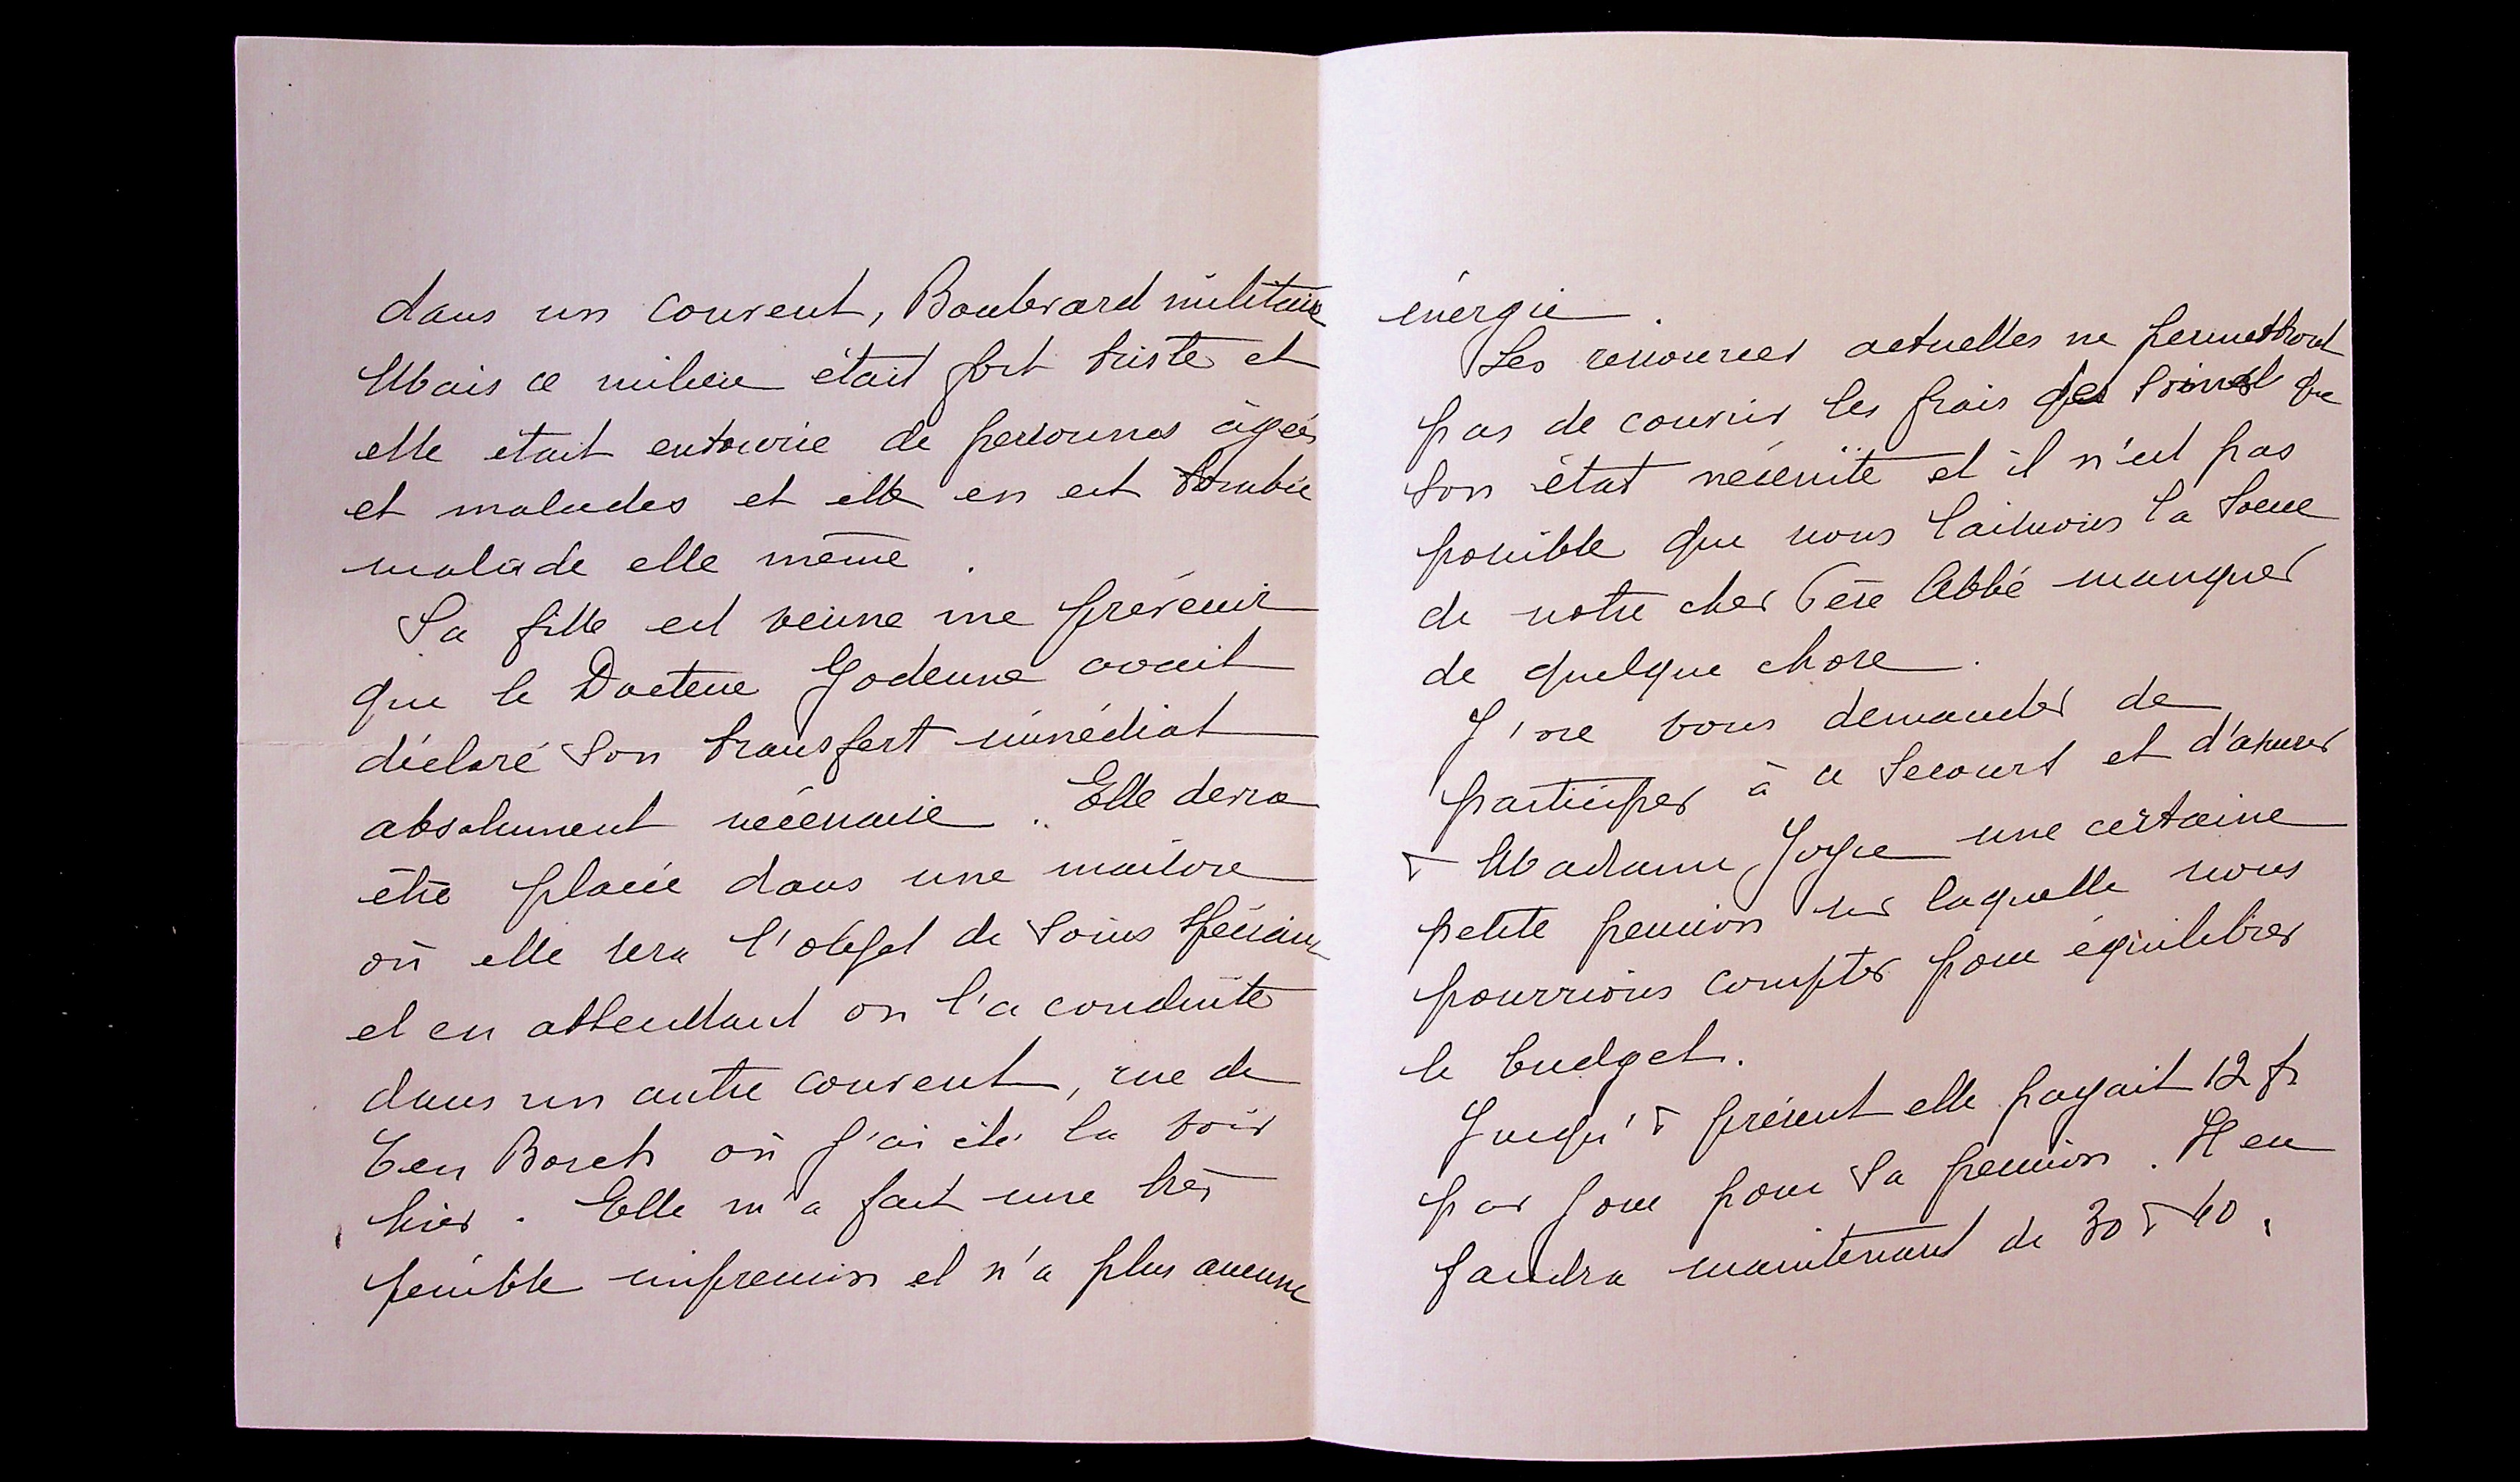 dans un couvent, Boulevard militaire
Mais ce milieu était fort triste et
elle était entourée de personnes âgées
et malades et elle en est tombée
malade elle même.
Sa fille est venue me prévenir
que le Docteur Godenne avait
déclaré son transfert immédiat
absolument nécessaire. Elle devra
être placée dans une maison
où elle sera l'objet de soins spéciaux
et en attendant on l'a conduite
dans un autre couvent, rue de
Ten Bosch où j'ai été la voir
hier. Elle m'a fait une très
pénible impression et n'a plus aucune
énergie.
Ses ressources actuelles ne permettront
pas de couvrir les frais des soins que
son état nécessite et il n'est pas
possible que nous laissions la soeur
de notre cher Père Abbé manquer
de quelque chose.
J'ose vous demander de
participer à ce secours et d'assurer
à Madame Joye une certaine
petite pension sur laquelle nous
pourrions compter pour équilibrer
le budget.
Jusqu'à présent elle payait 12 fr
par jour pour sa pension. Il en
faudra maintenant de 30 à 40.